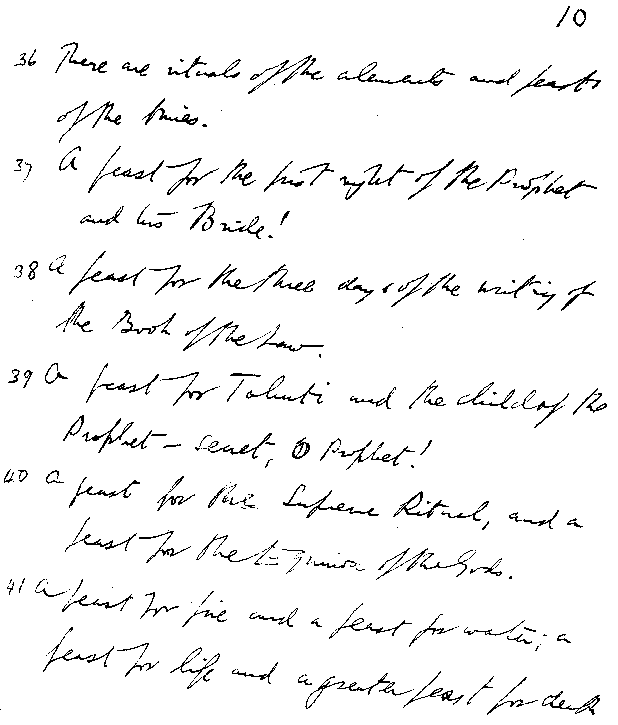 10
36 There are rituals of the elements and feasts
of the times.
37 A feast for the first night of the Prophet
and his Bride!
38 A feast for the three days of the writing of
the Book of the Law.
39 A feast for Tahuti and the child of the
Prophet – secret, O Prophet!
40 A feast for the Supreme Ritual, and a
feast for the Equinox of the Gods.
41 A feast for fire and a feast for water; a
feast for life and a greater feast for death